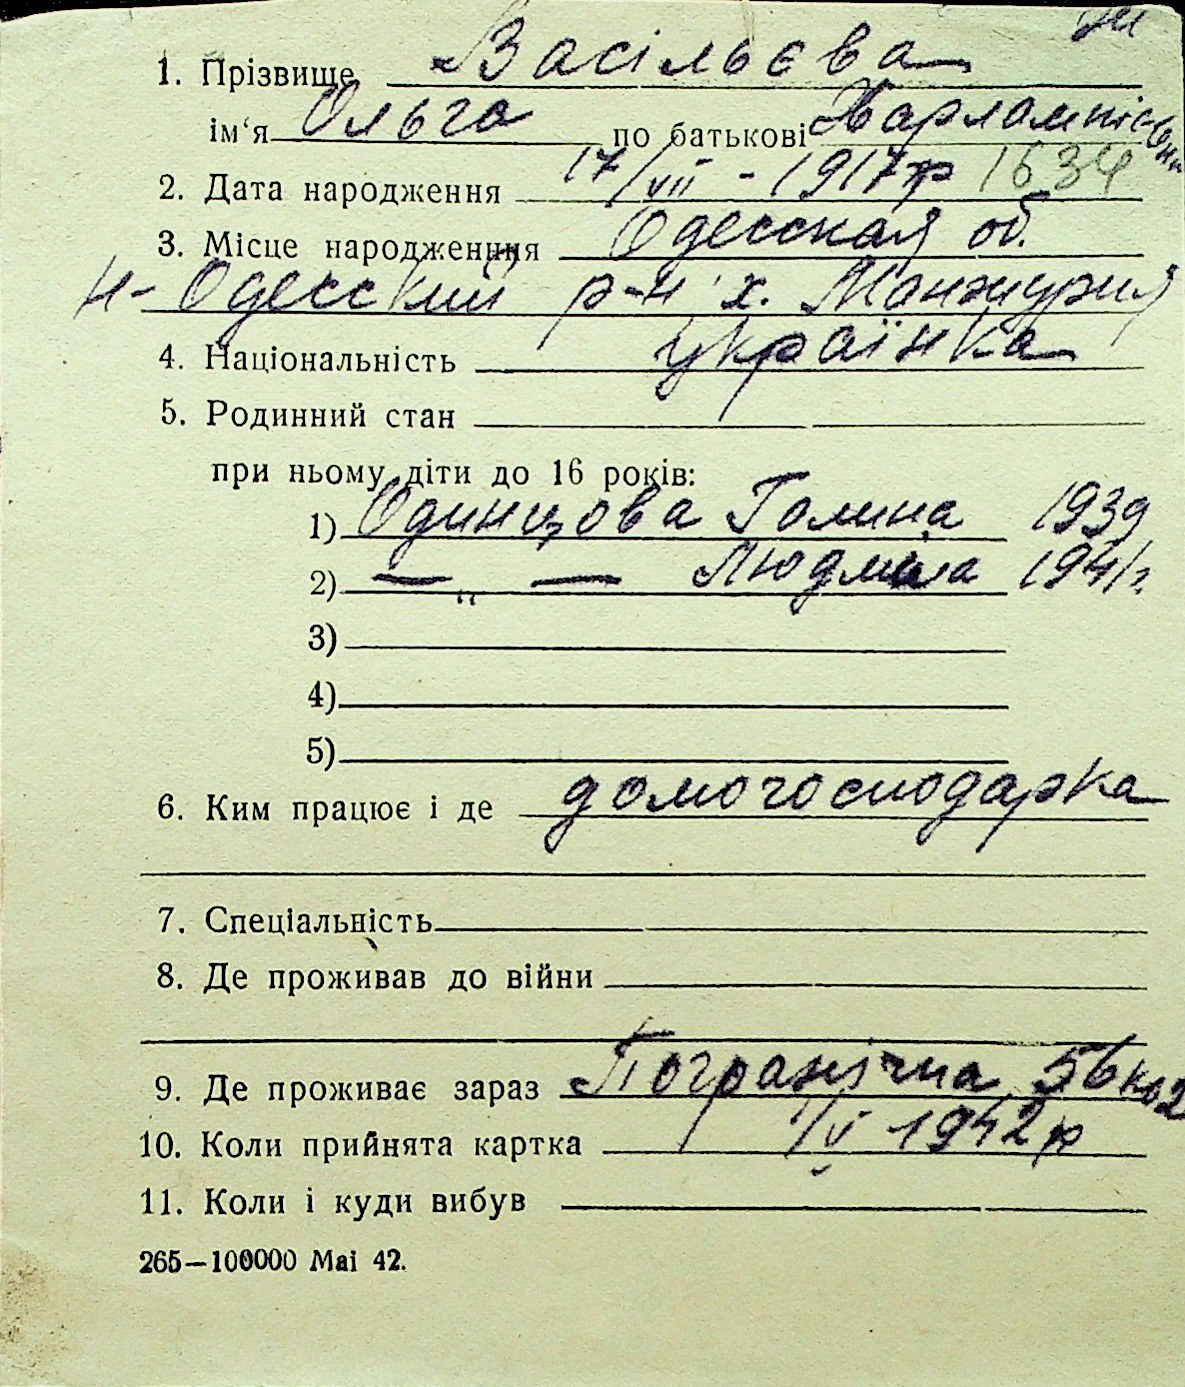 1. Прізвище Васільєва
ім'я Ольга по батькові Харлампіївн
2. Дата народження 17/VII - 1917 р 1634
3. Місце народження Одесская об.
Н-Одесский р-н х. Манжурия
4. Національність Українка
5. Родинний стан
при ньому діти до 16 років:
1) Одинцова Галина 1939
2) — „ — Людмила 1941 г.
3)
4)
5)
6. Ким працює і де домогосподарка
7. Спеціальність
8. Де проживав до війни
9. Де проживає зараз Погранічна 56 кв 2
10. Коли прийнята картка 1/V 1942 р
11. Коли і куди вибув
265—100000 Mai 42.